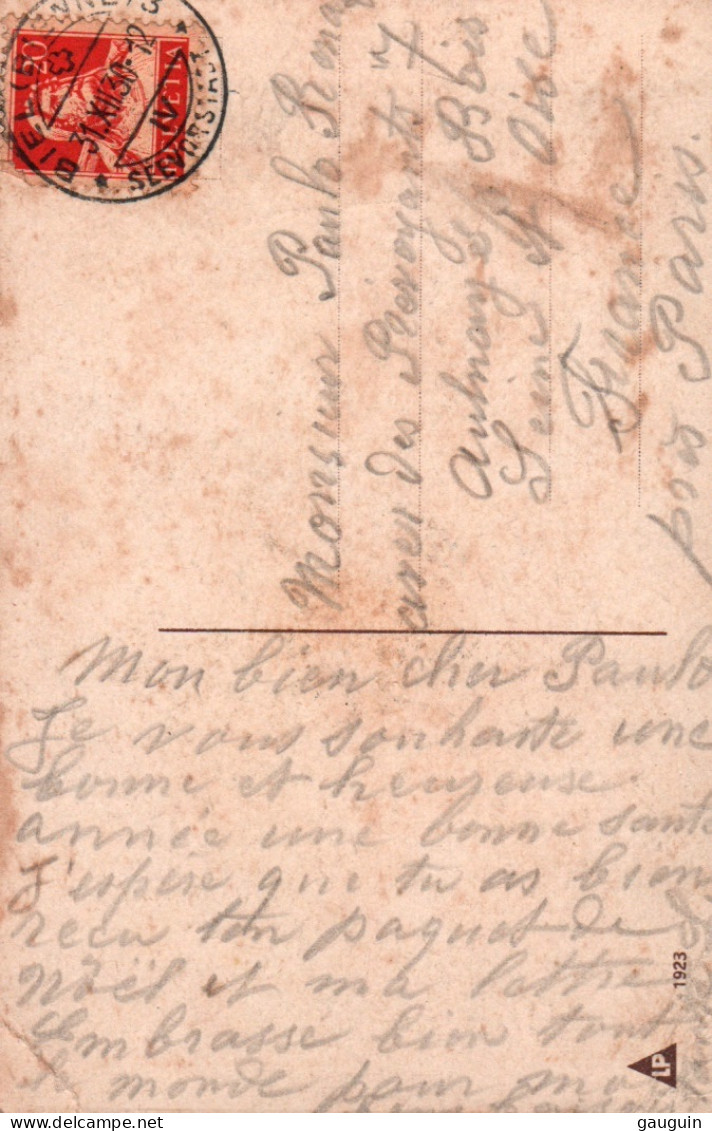 BIEL (B
31.XII.30-12
IV
SEEVORSTADT
HELVETIA
Monsieur Paulo
aven des Prévoyants 7
Aulnay s/ Bois
Seine et Oise
France
près Paris.
Mon bien cher Paulo
Je vous souhaite une
bonne et heureuse
année une bonne santé
J'espère que tu as bien
reçu ton paquet de
Noël et ma lettre
Embrasse bien tout
le monde pour mo
1923
LP
gauguin © Delcampe.net